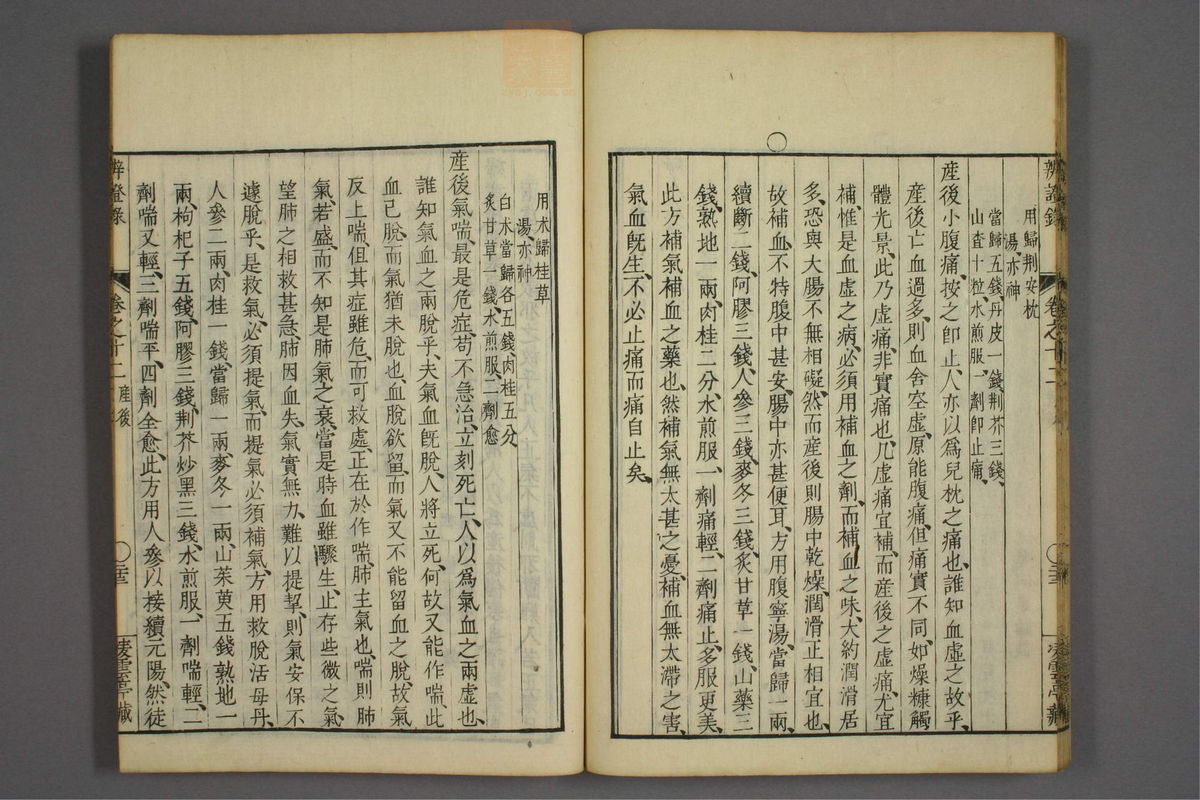 辨證錄
卷之十二
凌雲亭藏
用歸荆安枕
湯亦神
當歸五錢、丹皮一錢、荆芥三錢、
山査十粒、水煎服、一劑卽止痛、
産後小腹痛、按之卽止、人亦以爲兒枕之痛也、誰知血虛之故乎、
産後亡血過多、則血舍空虛、原能腹痛、但痛實不同、如燥糠觸
體光景、此乃虛痛、非實痛也、凡虛痛宜補、而産後之虛痛、尤宜
補、惟是血虛之病、必須用補血之劑、而補血之味、大約潤滑居
多、恐與大腸不無相礙、然而産後則腸中乾燥、潤滑正相宜也、
故補血、不特腹中甚安、腸中亦甚便耳、方用腹寧湯、當歸一兩、
續斷二錢、阿膠三錢、人參三錢、麥冬三錢、炙甘草一錢、山藥三
錢、熟地一兩、肉桂二分、水煎服、一劑痛輕、二劑痛止、多服更美、
此方補氣補血之藥也、然補氣無太甚之憂、補血無太滯之害、
氣血旣生、不必止痛而痛自止矣、
用朮歸桂草
湯亦神
白朮當歸各五錢、肉桂五分、
炙甘草一錢、水煎服、二劑愈
産後氣喘、最是危症、苟不急治、立刻死亡、人以爲氣血之兩虛也、
誰知氣血之兩脫乎、夫氣血旣脫、人將立死、何故又能作喘、此
血已脫、而氣猶未脫也、血脫欲留、而氣又不能留血之脫、故氣
反上喘、但其症雖危、而可救處、正在於作喘、肺主氣也、喘則肺
氣、若盛、而不知是肺氣之衰、當是時血雖驟生、止存些微之氣、
望肺之相救甚急、肺因血失、氣實無力、難以提挈、則氣安保不
遽脫乎、是救氣必須提氣、而提氣必須補氣、方用救脫活母丹、
人參二兩、肉桂一錢、當歸一兩、麥冬一兩、山茱萸五錢、熟地一
兩、枸杞子五錢、阿膠三錢、荆芥炒黑三錢、水煎服、一劑喘輕、二
劑喘又輕、三劑喘平、四劑全愈、此方用人參以接續元陽、然徒
辨證錄
卷之十二
産後
凌雲亭藏